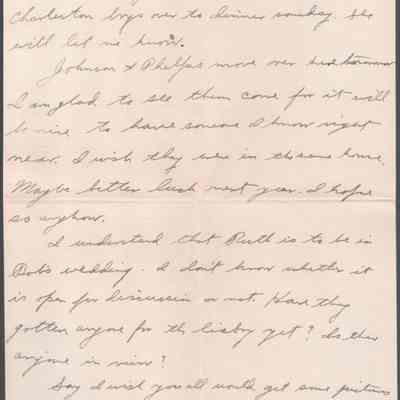 Charleston boys over to dinner sunday. She
will let me know.
Johnson & Phelps move over here tomorrow
I am glad to see them come for it will
be nice to have someone I know right
near. I wish they were in the same house.
Maybe better luck next year. I hope
so anyhow.
I understand that Ruth is to be in
Bob's wedding. I don't know whether it
is open for discussion or not. Have they
gotten anyone for the yet? Is there
anyone in view?
Say I wish you all would get some pictures